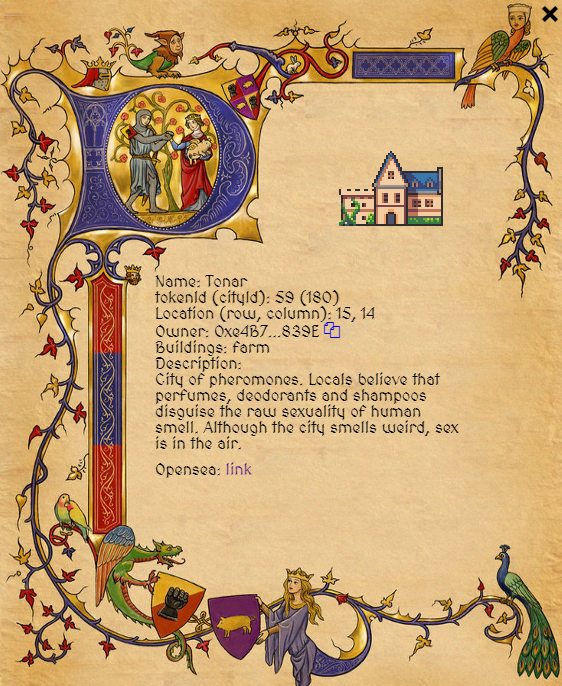 Name: Tonar
tokenId (cityId): 59 (180)
Location (row, column): 15, 14
Owner: 0xe4B7...839E
Buildings: farm
Description:
City of pheromones. Locals believe that
perfumes, deodorants and shampoos
disguise the raw sexuality of human
smell. Although the city smells weird, sex
is in the air.
Opensea: link